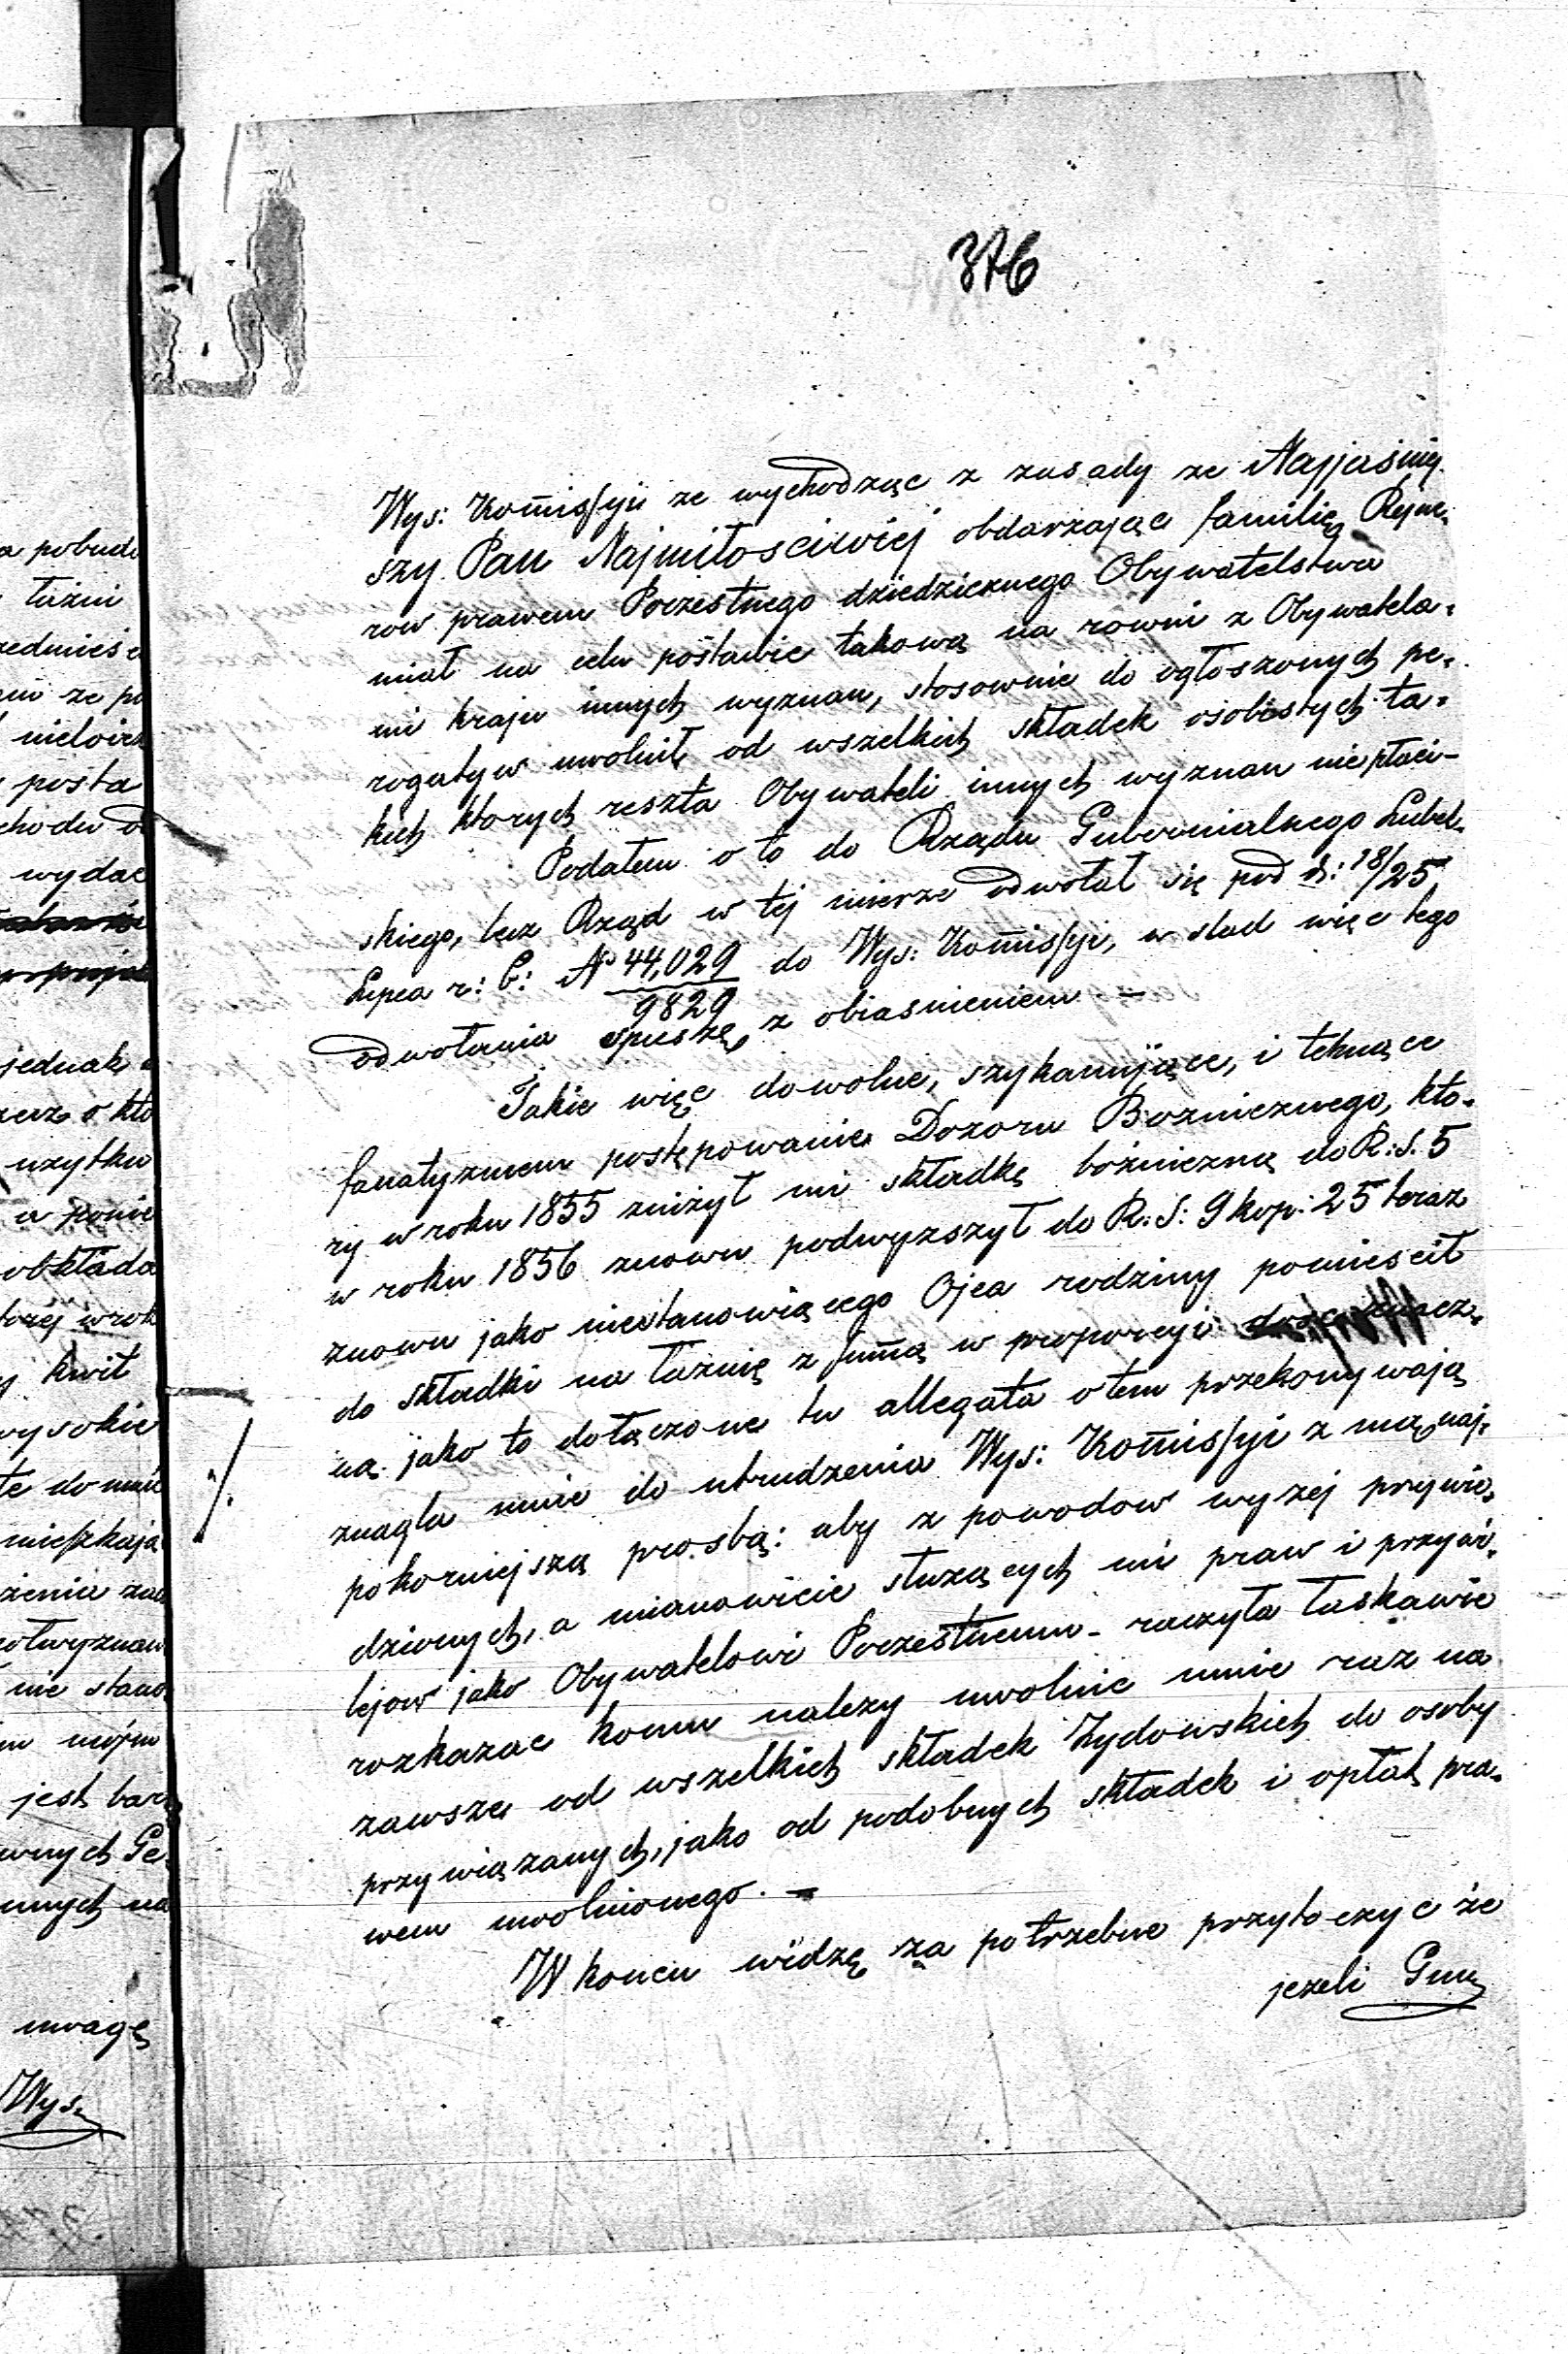 376
Wys: Kom̅issyi że wychodząc z zasady że Najjaśniej
szy Pan Najmiłosciwiej obdarzając familię Rejne-
row prawem Poczestnego dziedzicznego Obywatelstwa
miał na celu postawić takową na rowni z Obywatela-
mi kraju innych wyznan, stosownie do ogłoszonych pe-
rogatyw uwolnił od wszelkich składek osobistych ta-
kich ktorych reszta Obywateli innych wyznan nie płaci -
Podałem o to do Rządu Gubernialnego Lubel-
skiego, lecz Rząd w tej mierze odwołał się pod d: 18/25
Lipca r: b: No 44,029/9829 do Wys: Kom̅issyi, w slad więc tego
odwołania spieszę z obiasnieniem. -
Takie więc dowolne, szykanujące, i tchnące
fanatyzmem postępowanie Dozoru Boznicznego, kto-
ry w roku 1855 zniżył mi składkę bożniczną do R: S. 5
w roku 1856 znowu podwyzszył do R: S: 9 kop: 25 teraz
znowu jako niestanowiącego Ojca rodziny pomiescił
do składki na łaznię z sum̅ą w proporcyi
ną jako to dołączone tu allegata o tem przekonywają
znagla mnie do utrudzenia Wys: Kom̅issyi z mą naj-
pokorniejszą prosbą: aby z powodow wyzej przywie-
dzionych, a mianowicie służących mi praw i przywi-
lejow jako Obywatelowi Poczestnemu - raczyła łaskawie
rozkazac komu nalezy uwolnic mnie raz na
zawsze od wszelkich składek Żydowskich do osoby
przywiązanych, jako od podobnych składek i opłat pra-
wem uwolnionego. -
W koncu widzę za potrzebne przytoczyc że
jezeli Gmi